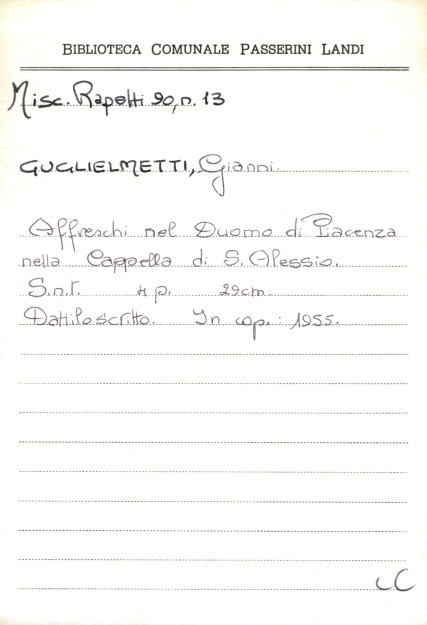 BIBLIOTECA COMUNALE PASSERINI LANDI
Misc. Rapetti 20, n. 13
GUGLIELMETTI, Gianni.
Affreschi nel Duomo di Piacenza
nella Cappella di S. Alessio.
S.n.t. 4 p. 29cm.
Dattiloscritto. In cop.: 1955.